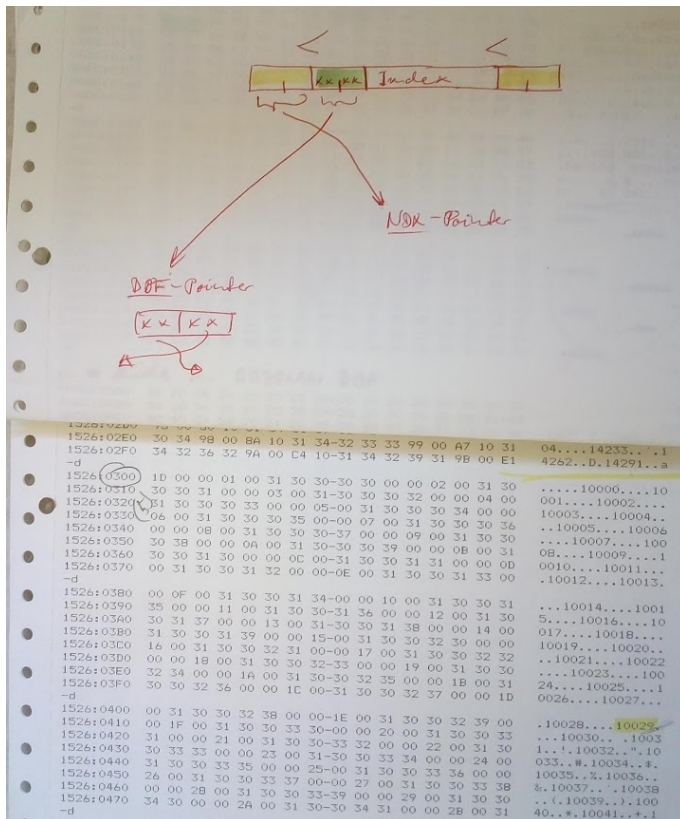 < <
xx xx Index
NDX-Pointer
DBF-Pointer
xx xx
1526:02E0 30 34 98 00 BA 10 31 34-32 33 33 99 00 A7 10 31 04....14233....1
1526:02F0 34 32 36 32 9A 00 C4 10-31 34 32 39 31 9B 00 E1 4262..D.14291..a
-d
1526:0300 1D 00 00 01 00 31 30 30-30 30 00 00 02 00 31 30 .....10000....10
1526:0310 30 30 31 00 00 03 00 31-30 30 30 32 00 00 04 00 001....10002....
1526:0320 31 30 30 30 33 00 00 05-00 31 30 30 30 34 00 00 10003....10004..
1526:0330 06 00 31 30 30 30 35 00-00 07 00 31 30 30 30 36 ..10005....10006
1526:0340 00 00 08 00 31 30 30 30-37 00 00 09 00 31 30 30 ....10007....100
1526:0350 30 38 00 00 0A 00 31 30-30 30 39 00 00 0B 00 31 08....10009....1
1526:0360 30 30 31 30 00 00 0C 00-31 30 30 31 31 00 00 0D 0010....10011...
1526:0370 00 31 30 30 31 32 00 00-0E 00 31 30 30 31 33 00 .10012....10013.
-d
1526:0380 00 0F 00 31 30 30 31 34-00 00 10 00 31 30 30 31 ...10014....1001
1526:0390 35 00 00 11 00 31 30 30-31 36 00 00 12 00 31 30 5....10016....10
1526:03A0 30 31 37 00 00 13 00 31-30 30 31 38 00 00 14 00 017....10018....
1526:03B0 31 30 30 31 39 00 00 15-00 31 30 30 32 30 00 00 10019....10020..
1526:03C0 16 00 31 30 30 32 31 00-00 17 00 31 30 30 32 32 ..10021....10022
1526:03D0 00 00 18 00 31 30 30 32-33 00 00 19 00 31 30 30 ....10023....100
1526:03E0 32 34 00 00 1A 00 31 30-30 32 35 00 00 1B 00 31 24....10025....1
1526:03F0 30 30 32 36 00 00 1C 00-31 30 30 32 37 00 00 1D 0026....10027...
-d
1526:0400 00 31 30 30 32 38 00 00-1E 00 31 30 30 32 39 00 .10028....10029.
1526:0410 00 1F 00 31 30 30 33 30-00 00 20 00 31 30 30 33 ...10030.. .1003
1526:0420 31 00 00 21 00 31 30 30-33 32 00 00 22 00 31 30 1..!.10032..".10
1526:0430 30 33 33 00 00 23 00 31-30 30 33 34 00 00 24 00 033..#.10034..$.
1526:0440 31 30 30 33 35 00 00 25-00 31 30 30 33 36 00 00 10035..%.10036..
1526:0450 26 00 31 30 30 33 37 00-00 27 00 31 30 30 33 38 &.10037..'.10038
1526:0460 00 00 28 00 31 30 30 33-39 00 00 29 00 31 30 30 ..(.10039..).100
1526:0470 34 30 00 00 2A 00 31 30-30 34 31 00 00 2B 00 31 40..*.10041..+.1
-d